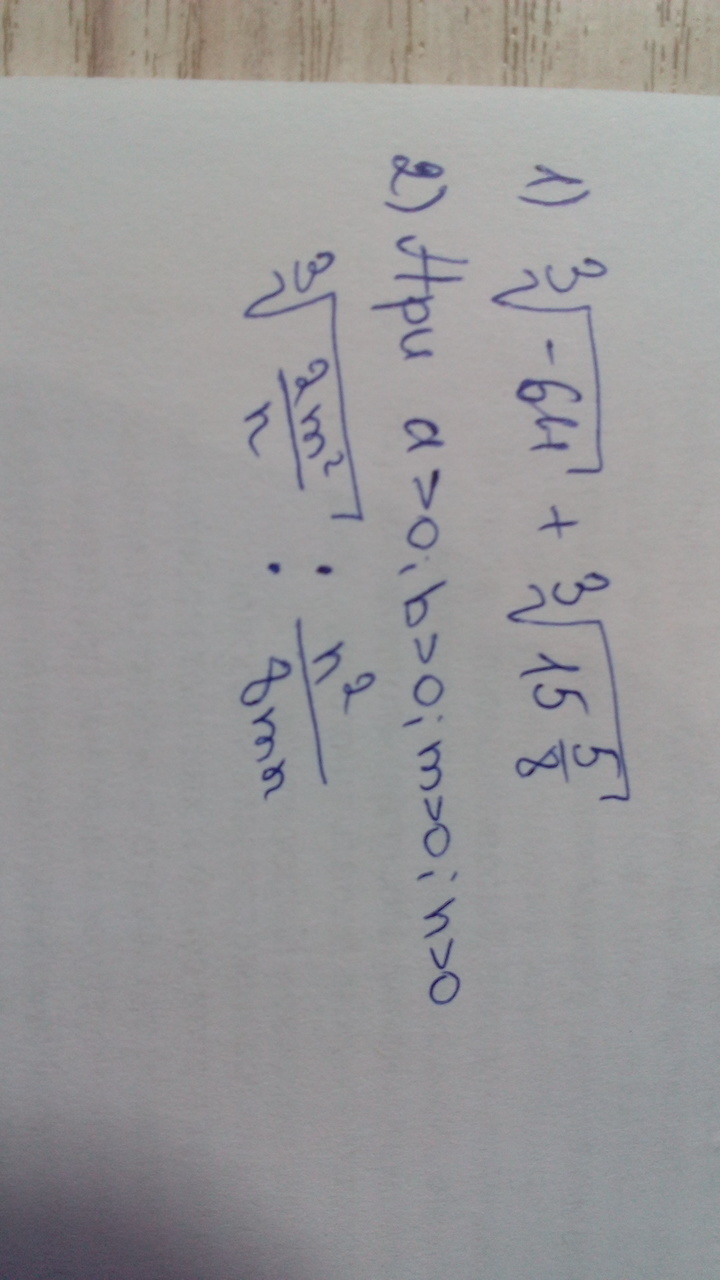 1) ∛-64 + ∛15 5/8
2) При a>0; b>0; m>0; n>0
∛(2m²/n) : n²/8mn